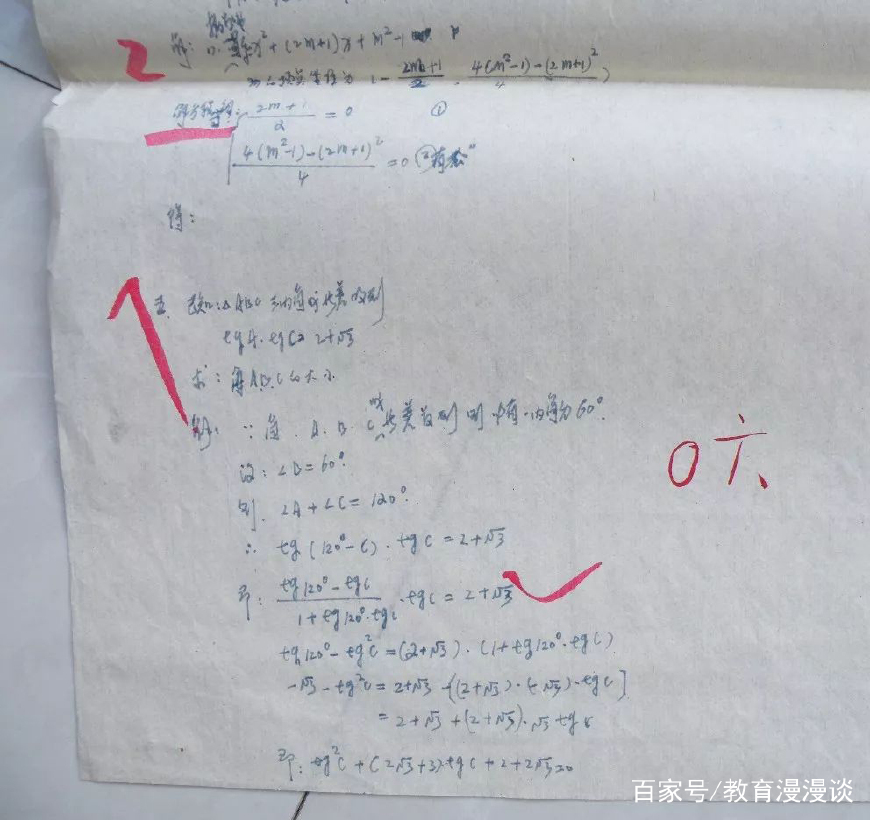 2
解: y = x² + (2m+1)x + m² - 1
- (2m+1)/2 , (4(m²-1)-(2m+1)²)/4 )
解方程组: { (2m+1)/2 = 0 ①
(4(m²-1)-(2m+1)²)/4 = 0 ②
得:
五. 已知: △ABC 三内角成等差数列
tgA·tgC = 2+√3
求: 角A.B.C的大小
解: ∵ 角 A. B. C 成等差数列 则 中有一内角为60°.
设: ∠B = 60°
则. ∠A + ∠C = 120°.
∴ tg(120°-C)·tgC = 2+√3
即: (tg120°-tgC)/(1+tg120°·tgC) ·tgC = 2+√3
tg120° - tg²C = (2+√3)·(1+tg120°·tgC)
-√3 - tg²C = 2+√3 +[(2+√3)·(-√3)·tgC]
= 2+√3 + (2+√3)·√3 tgC
即: tg²C + (2√3+3)tgC + 2+2√3 = 0
0 六、
百家号/教育漫漫谈